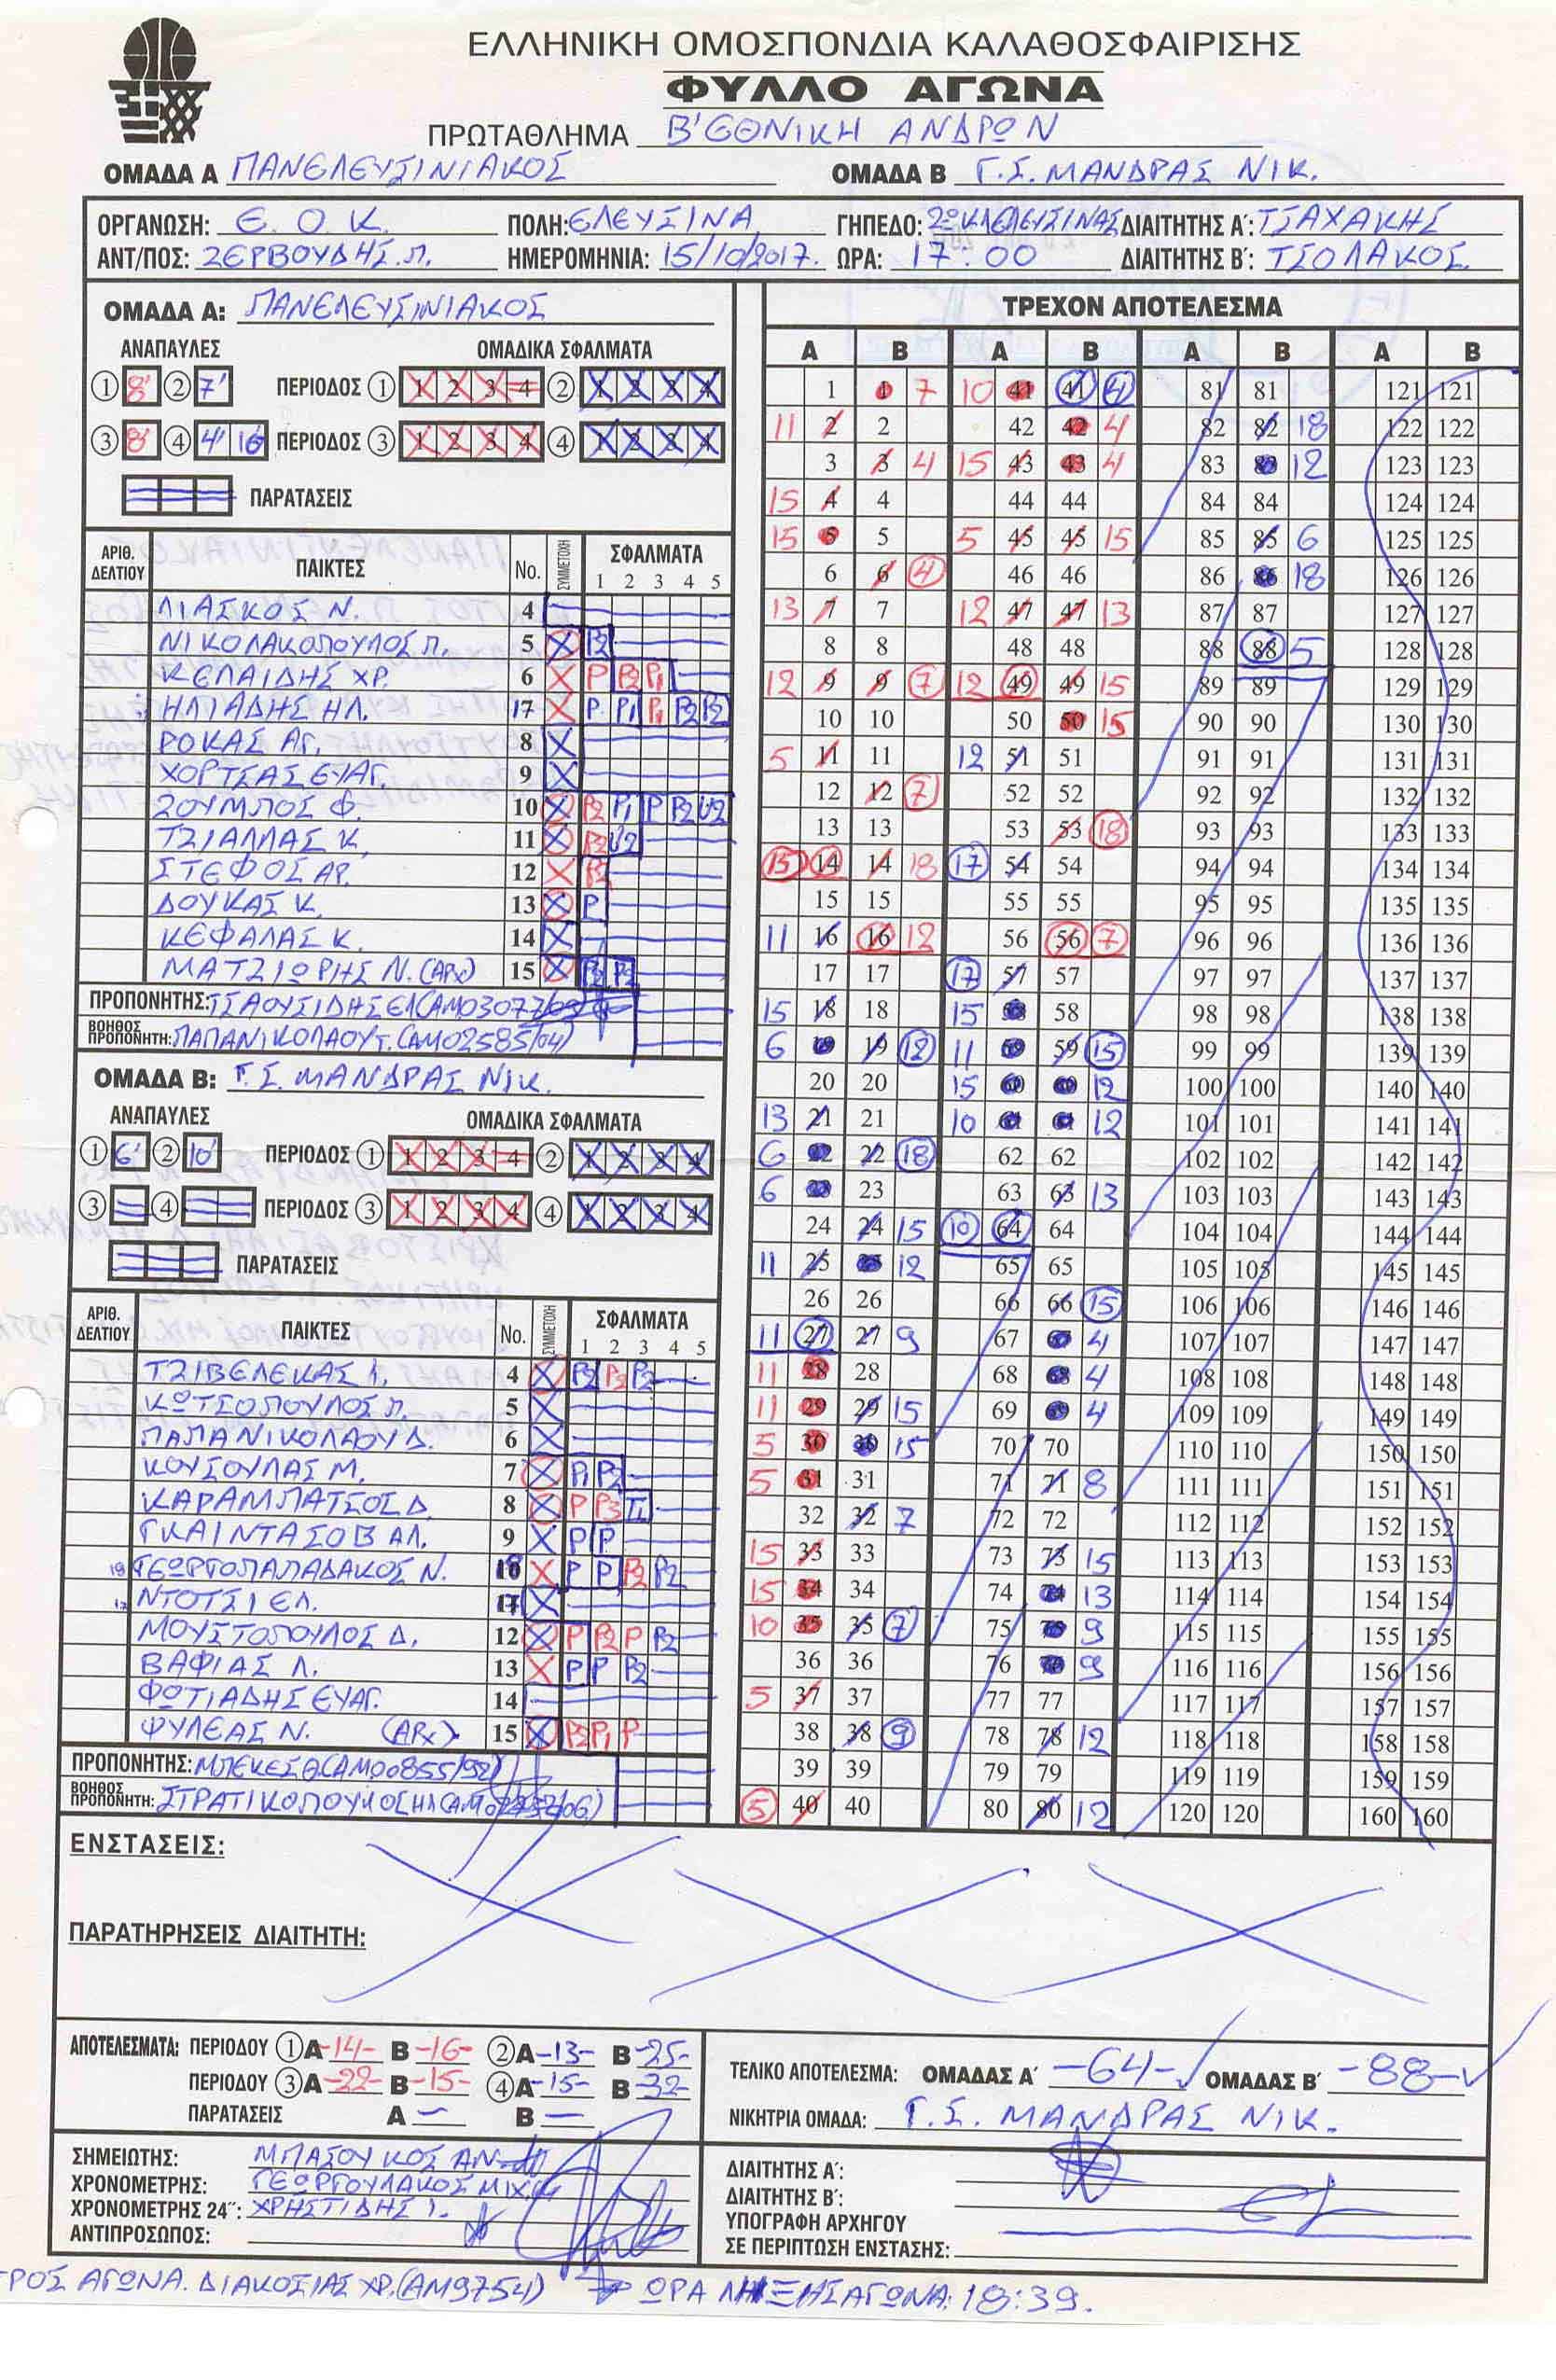 ΕΛΛΗΝΙΚΗ ΟΜΟΣΠΟΝΔΙΑ ΚΑΛΑΘΟΣΦΑΙΡΙΣΗΣ
ΦΥΛΛΟ ΑΓΩΝΑ
ΠΡΩΤΑΘΛΗΜΑ Β' ΕΘΝΙΚΗ ΑΝΔΡΩΝ
ΟΜΑΔΑ Α ΠΑΝΕΛΕΥΣΙΝΙΑΚΟΣ ΟΜΑΔΑ Β Γ.Σ. ΜΑΝΔΡΑΣ ΝΙΚ.
ΟΡΓΑΝΩΣΗ: Ε.Ο.Κ. ΠΟΛΗ: ΕΛΕΥΣΙΝΑ ΓΗΠΕΔΟ: 2ο ΚΛ ΕΛΕΥΣΙΝΑΣ ΔΙΑΙΤΗΤΗΣ Α΄: ΤΣΑΧΑΚΗΣ
ΑΝΤ/ΠΟΣ: ΖΕΡΒΟΥΔΗΣ.Π. ΗΜΕΡΟΜΗΝΙΑ: 15/10/2017. ΩΡΑ: 17:00 ΔΙΑΙΤΗΤΗΣ Β΄: ΤΣΟΛΑΚΟΣ
ΟΜΑΔΑ Α: ΠΑΝΕΛΕΥΣΙΝΙΑΚΟΣ
ΑΝΑΠΑΥΛΕΣ ΟΜΑΔΙΚΑ ΣΦΑΛΜΑΤΑ
1 8' 2 7' ΠΕΡΙΟΔΟΣ 1 1 2 3 4 2 1 2 3 4
3 8' 4 4' 10 ΠΕΡΙΟΔΟΣ 3 1 2 3 4 4 1 2 3 4
ΠΑΡΑΤΑΣΕΙΣ
ΑΡΙΘ. ΔΕΛΤΙΟΥ ΠΑΙΚΤΕΣ No. ΣΥΜΜΕΤΟΧΗ ΣΦΑΛΜΑΤΑ 1 2 3 4 5
ΛΙΑΣΚΟΣ Ν. 4
ΝΙΚΟΛΑΚΟΠΟΥΛΟΣ Π. 5 X P2
ΚΕΛΑΙΔΗΣ ΧΡ. 6 X P P2 P1
ΗΛΙΑΔΗΣ ΗΛ. 17 X P P1 P1 P2 P2
ΡΟΚΑΣ ΑΓ. 8 X
ΧΟΡΤΣΑΣ ΕΥΑΓ. 9 X
ΖΟΥΜΠΟΣ Φ. 10 X P2 P1 P P2 U2
ΤΖΙΑΛΛΑΣ Κ. 11 X P2 U2
ΣΤΕΦΟΣ ΑΡ. 12 X P2
ΔΟΥΚΑΣ Κ. 13 X P
ΚΕΦΑΛΑΣ Κ. 14 X
ΜΑΤΖΙΩΡΗΣ Ν. (ΑΡχ) 15 X P2 P2
ΠΡΟΠΟΝΗΤΗΣ: ΤΣΑΟΥΣΙΔΗΣ ΕΛ (ΑΜ03077/09)
ΒΟΗΘΟΣ ΠΡΟΠΟΝΗΤΗ: ΠΑΠΑΝΙΚΟΛΑΟΥ Τ. (ΑΜ02585/04)
ΟΜΑΔΑ Β: Γ.Σ. ΜΑΝΔΡΑΣ ΝΙΚ.
ΑΝΑΠΑΥΛΕΣ ΟΜΑΔΙΚΑ ΣΦΑΛΜΑΤΑ
1 6' 2 10' ΠΕΡΙΟΔΟΣ 1 1 2 3 4 2 1 2 3 4
3 4 ΠΕΡΙΟΔΟΣ 3 1 2 3 4 4 1 2 3 4
ΠΑΡΑΤΑΣΕΙΣ
ΑΡΙΘ. ΔΕΛΤΙΟΥ ΠΑΙΚΤΕΣ No. ΣΥΜΜΕΤΟΧΗ ΣΦΑΛΜΑΤΑ 1 2 3 4 5
ΤΖΙΒΕΛΕΚΑΣ Ι. 4 X P2 P2 P2
ΚΩΤΣΟΠΟΥΛΟΣ Π. 5 X
ΠΑΠΑΝΙΚΟΛΑΟΥ Δ. 6 X
ΚΟΥΣΟΥΛΑΣ Μ. 7 X P1 P2
ΚΑΡΑΜΠΑΤΣΟΣ Δ. 8 X P P3 T1
ΓΚΑΙΝΤΑΣΟΒ ΑΛ. 9 X P P
ΓΕΩΡΓΟΠΑΠΑΔΑΚΟΣ Ν. 18 X P P P2 P2
ΝΤΟΤΣΙ ΕΛ. 17 X
ΜΟΥΣΤΟΠΟΥΛΟΣ Δ. 12 X P P2 P P2
ΒΑΦΙΑΣ Λ. 13 X P P P2
ΦΩΤΙΑΔΗΣ ΕΥΑΓ. 14
ΦΥΛΕΑΣ Ν. (ΑΡχ). 15 X P2 P1 P
ΠΡΟΠΟΝΗΤΗΣ: ΜΠΕΚΕΣ Θ (ΑΜ00855/92)
ΒΟΗΘΟΣ ΠΡΟΠΟΝΗΤΗ:
ΤΡΕΧΟΝ ΑΠΟΤΕΛΕΣΜΑ
Α Β Α Β Α Β Α Β
1 1 7 10 41 41 4 81 81 121 121
11 2 2 42 42 4 82 82 18 122 122
3 3 4 15 43 43 4 83 83 12 123 123
15 4 4 44 44 84 84 124 124
15 5 5 5 45 45 15 85 85 6 125 125
6 6 4 46 46 86 86 18 126 126
13 7 7 12 47 47 13 87 87 127 127
8 8 48 48 88 88 5 128 128
12 9 9 7 12 49 49 15 89 89 129 129
10 10 50 50 15 90 90 130 130
5 11 11 12 51 51 91 91 131 131
12 12 7 52 52 92 92 132 132
13 13 53 53 18 93 93 133 133
15 14 14 18 17 54 54 94 94 134 134
15 15 55 55 95 95 135 135
11 16 16 12 56 56 7 96 96 136 136
17 17 17 57 57 97 97 137 137
15 18 18 15 58 58 98 98 138 138
6 19 19 12 11 59 59 15 99 99 139 139
20 20 15 60 60 12 100 100 140 140
13 21 21 10 61 61 12 101 101 141 141
6 22 22 18 62 62 102 102 142 142
6 23 23 63 63 13 103 103 143 143
24 24 15 10 64 64 104 104 144 144
11 25 25 12 65 65 105 105 145 145
26 26 66 66 15 106 106 146 146
11 27 27 9 67 67 4 107 107 147 147
11 28 28 68 68 4 108 108 148 148
11 29 29 15 69 69 4 109 109 149 149
5 30 30 15 70 70 110 110 150 150
5 31 31 71 71 8 111 111 151 151
32 32 7 72 72 112 112 152 152
15 33 33 73 73 15 113 113 153 153
15 34 34 74 74 13 114 114 154 154
10 35 35 7 75 75 9 115 115 155 155
36 36 76 76 9 116 116 156 156
5 37 37 77 77 117 117 157 157
38 38 9 78 78 12 118 118 158 158
39 39 79 79 119 119 159 159
5 40 40 80 80 12 120 120 160 160
ΕΝΣΤΑΣΕΙΣ:
ΠΑΡΑΤΗΡΗΣΕΙΣ ΔΙΑΙΤΗΤΗ:
ΑΠΟΤΕΛΕΣΜΑΤΑ: ΠΕΡΙΟΔΟΥ 1 Α -14- Β -16- 2 Α -13- Β -25-
ΠΕΡΙΟΔΟΥ 3 Α -22- Β -15- 4 Α -15- Β -32-
ΠΑΡΑΤΑΣΕΙΣ Α — Β —
ΤΕΛΙΚΟ ΑΠΟΤΕΛΕΣΜΑ: ΟΜΑΔΑΣ Α΄ -64- ΟΜΑΔΑΣ Β΄ -88-
ΝΙΚΗΤΡΙΑ ΟΜΑΔΑ: Γ.Σ. ΜΑΝΔΡΑΣ ΝΙΚ.
ΣΗΜΕΙΩΤΗΣ: ΜΠΑΣΟΥΚΟΣ
ΧΡΟΝΟΜΕΤΡΗΣ: ΓΕΩΡΓΟΥΛΑΚΟΣ ΜΙΧ.
ΧΡΟΝΟΜΕΤΡΗΣ 24΄΄: ΧΡΗΣΤΙΔΗΣ Ι.
ΑΝΤΙΠΡΟΣΩΠΟΣ:
ΔΙΑΙΤΗΤΗΣ Α΄:
ΔΙΑΙΤΗΤΗΣ Β΄:
ΥΠΟΓΡΑΦΗ ΑΡΧΗΓΟΥ
ΣΕ ΠΕΡΙΠΤΩΣΗ ΕΝΣΤΑΣΗΣ:
ΤΡΟΣ ΑΓΩΝΑ. ΔΙΑΚΟΣΙΑΣ ΧΡ. (ΑΜ9754) ΩΡΑ ΛΗΞΗΣ ΑΓΩΝΑ: 18:39.